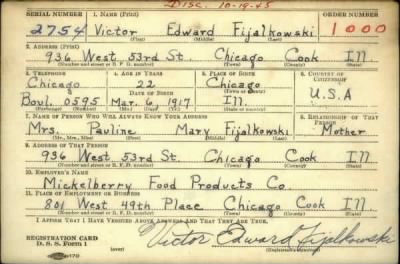 Disc. 10-19-45
SERIAL NUMBER 1. NAME (Print) ORDER NUMBER
2754 Victor Edward Fijalkowski 1000
(First) (Middle) (Last)
2. ADDRESS (Print)
936 West 53rd St. Chicago Cook Ill
(Number and street or R. F. D. number) (Town) (County) (State)
3. TELEPHONE 4. AGE IN YEARS 5. PLACE OF BIRTH 6. COUNTRY OF CITIZENSHIP
Chicago 22 Chicago
DATE OF BIRTH (Town or county)
Boul. 0595 Mar. 6, 1917 Ill. U.S.A
(Exchange) (Number) (Mo.) (Day) (Yr.) (State or country)
7. NAME OF PERSON WHO WILL ALWAYS KNOW YOUR ADDRESS 8. RELATIONSHIP OF THAT PERSON
Mrs. Pauline Mary Fijalkowski Mother
(Mr., Mrs., Miss) (First) (Middle) (Last)
9. ADDRESS OF THAT PERSON
936 West 53rd St. Chicago Cook Ill
(Number and street or R. F. D. number) (Town) (County) (State)
10. EMPLOYER'S NAME
Mickelberry Food Products Co.
11. PLACE OF EMPLOYMENT OR BUSINESS
801 West 49th Place Chicago Cook Ill
(Number and street or R. F. D. number) (Town) (County) (State)
I AFFIRM THAT I HAVE VERIFIED ABOVE ANSWERS AND THAT THEY ARE TRUE.
REGISTRATION CARD
D. S. S. Form 1 (over) Victor Edward Fijalkowski
(Registrant's signature)